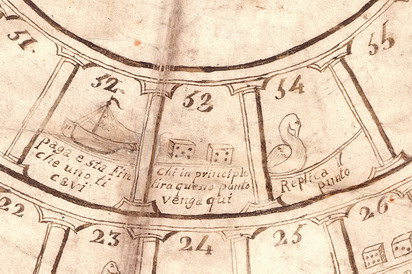 51
52
53
54
55
paga e sta fin
che uno li
cavi
Chi in principio
tira questo punto
venga qui
Replica
punto
22
23
24
25
26